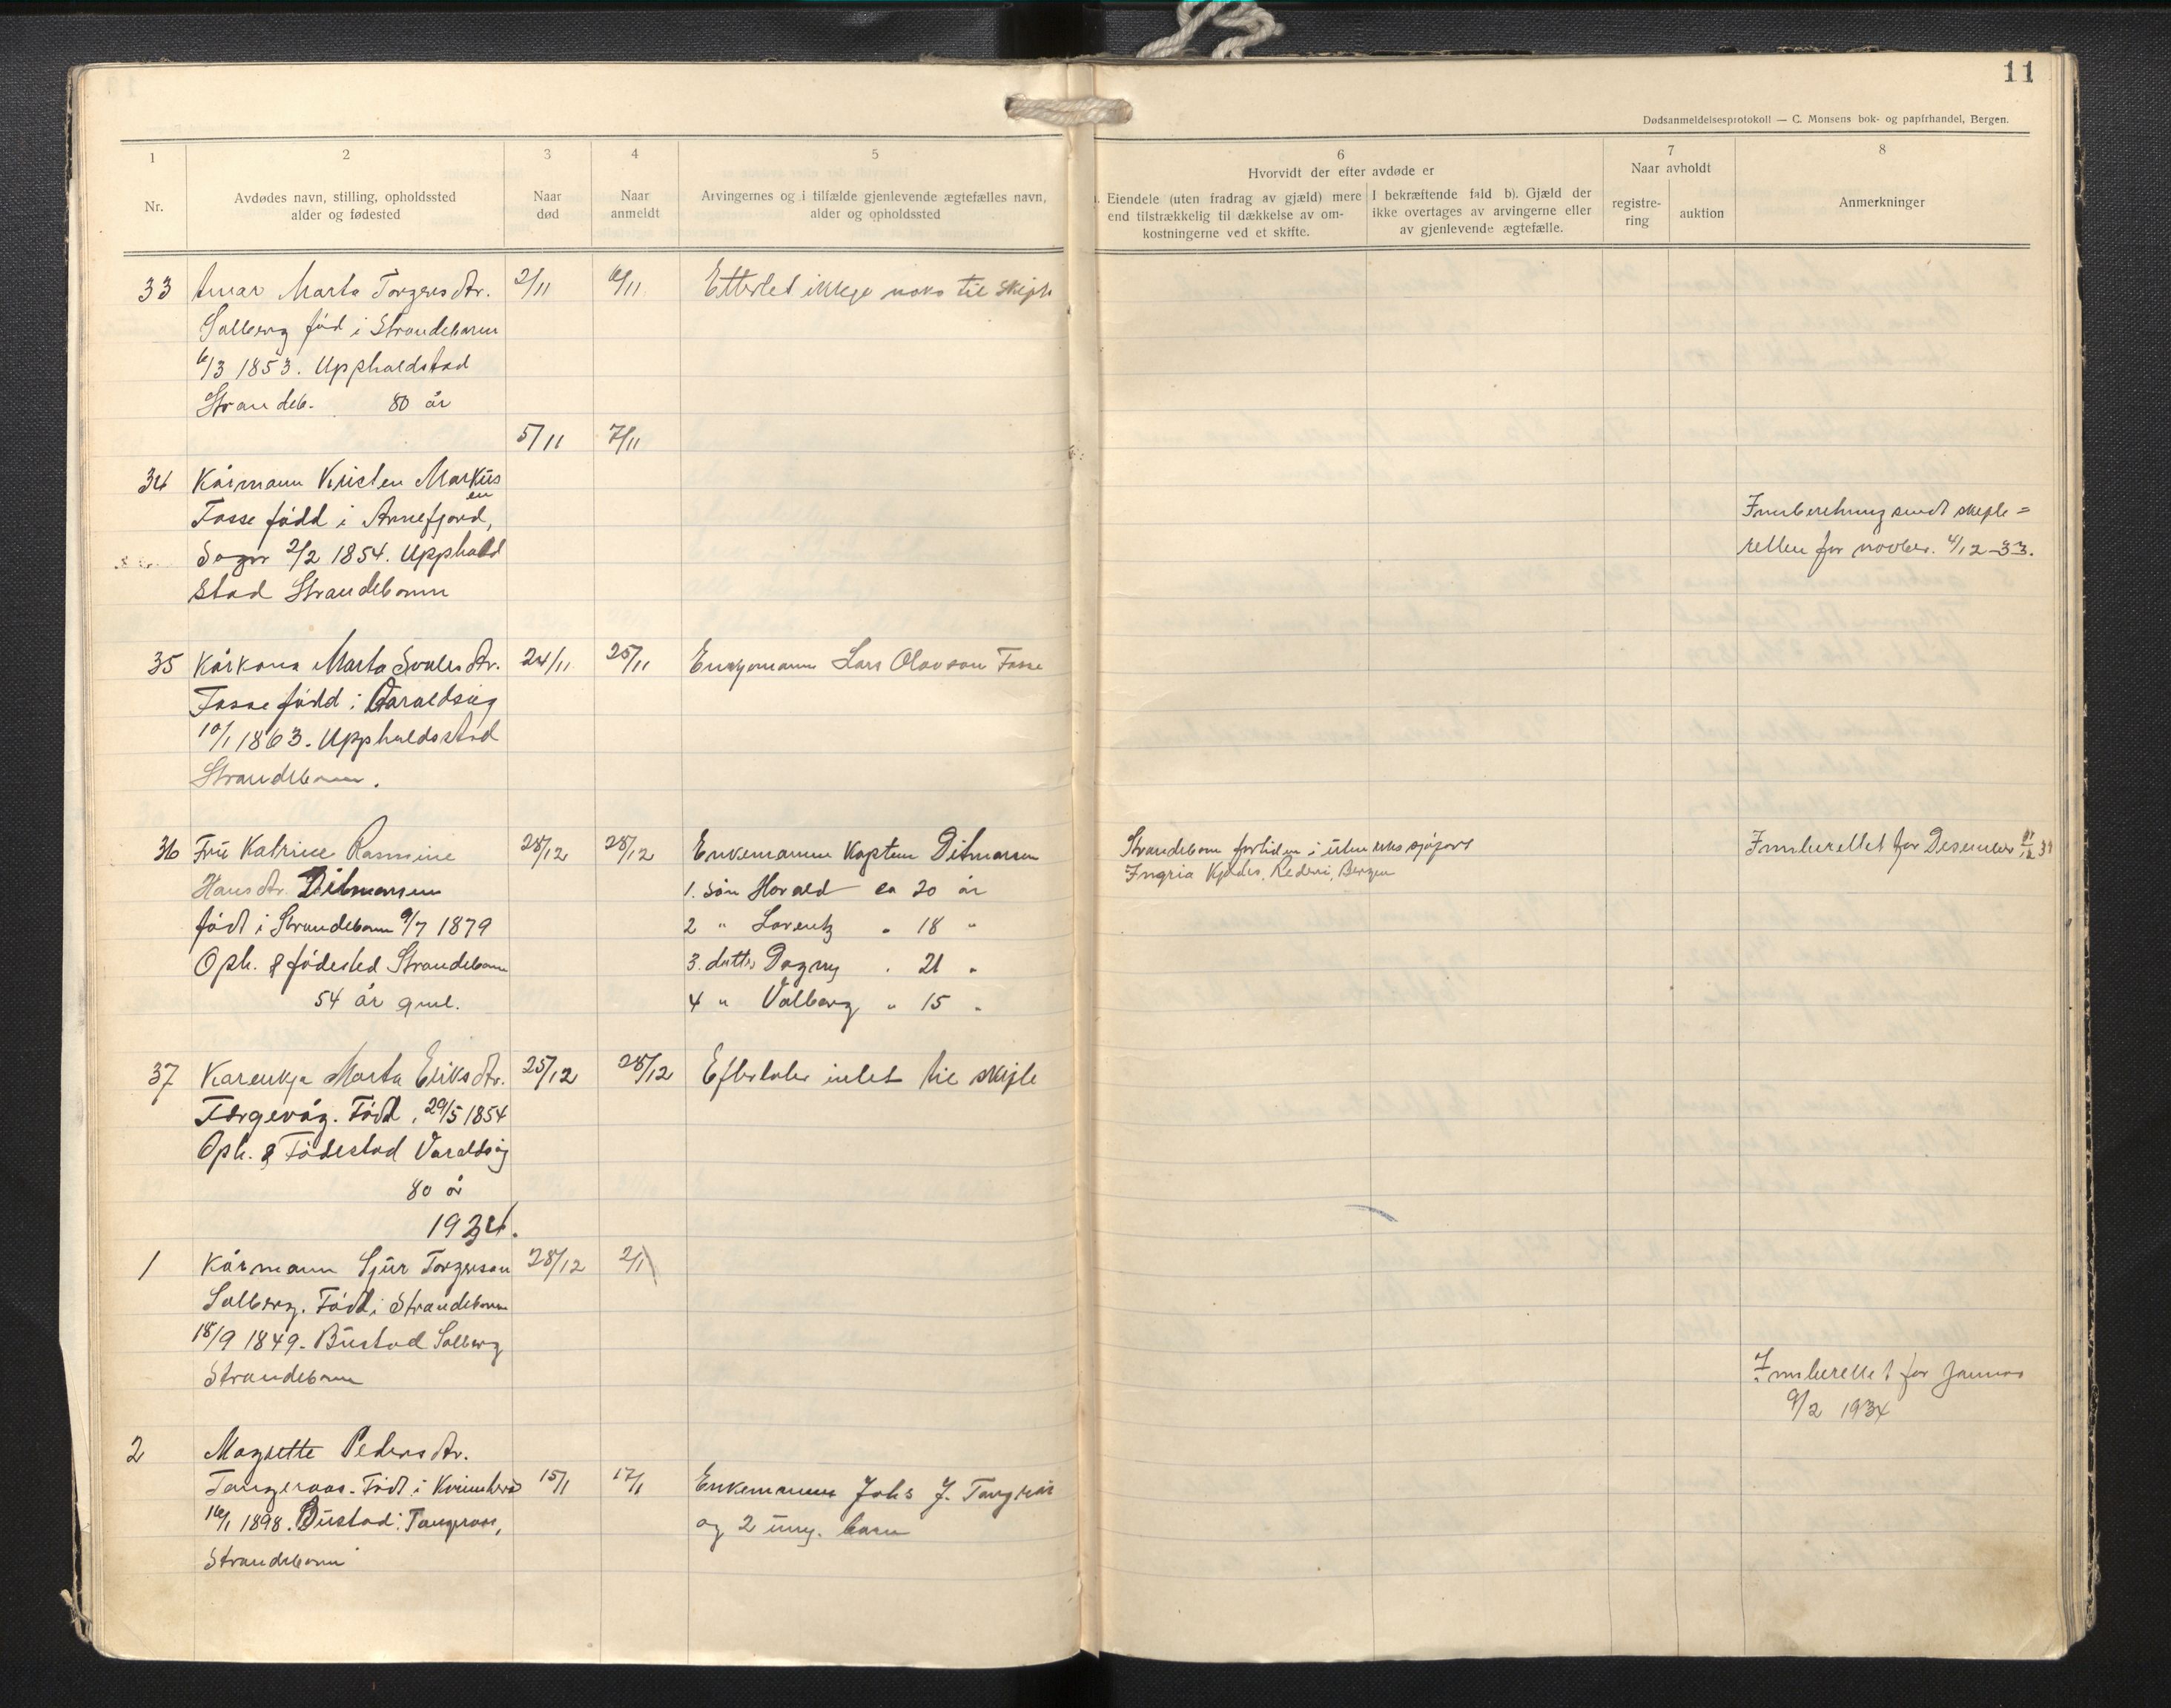 11
Dødsanmeldelsesprotokoll — C. Monsens bok- og papirhandel, Bergen.
1 2 3 4 5 6 7 8
Nr.
Avdødes navn, stilling, opholdssted
alder og fødested
Naar
død
Naar
anmeldt
Arvingernes og i tilfælde gjenlevende ægtefælles navn,
alder og opholdssted
Hvorvidt der efter avdøde er
Eiendele (uten fradrag av gjæld) mere
end tilstrækkelig til dækkelse av om-
kostningerne ved et skifte.
I bekræftende fald b). Gjæld der
ikke overtages av arvingerne eller
av gjenlevende ægtefælle.
Naar avholdt
registre-
ring
auktion
Anmerkninger
33 Marta Torgersdtr. 2/11 6/11 Etterlet ikkje noko til skifte
Solberg fød i Strandebarm
6/3 1853. Uppholdstad
Strandeb. 80 år
5/11 7/11
34 Kårmann Kristen Markus
en
Fosse fødd i Arnefjord,
Sogn 2/2 1854. Upphold
stad Strandebarm
Innberetning sendt skifte=
retten for novber. 4/12-33.
35 Kårkona Marta Sveinsdtr. 24/11 25/11 Enkjemann Lars Olavson Fosse
Fosse fødd i Varaldsøy
10/1 1863. Uppholdsstad
Strandebarm.
36 Fru Katrine Rasmine 28/12 28/12 Enkemann Kaptein Ditmarsen
Hansdtr. Ditmarsen
født i Strandebarm 9/7 1879
Oph. & fødested Strandebarm
54 år gml.
1. Søn Harald ca 20 år
2 " Lorentz " 18 "
3. datter Dagny " 21 "
4 " Valborg " 15 "
Strandebarm fortiden i utenriks sjøfart
Ingria Kjødes, Rederi, Bergen
Innberettet for Desember
37 Karenkja Marta Eriksdtr. 25/12 28/12 Efterlater intet til skifte
Færgevåg. Født, 29/5 1854
Oph. & Fødestad Varaldsøy
80 år
1934.
1 Kårmann Sjur Torgerson 28/12 2/1
Solberg. Født i Strandebarm
18/9 1849. Bustad Solberg
Strandebarm
Innberettet for Januar
9/2 1934
2 Magnette Pedersdtr.
Tangeraas. Født i Kvinnherad 15/1 17/1 Enkemann Johs J. Tangerås
16/1 1898. Bustad: Tangeraas,
og 2 umy. barn
Strandebarm